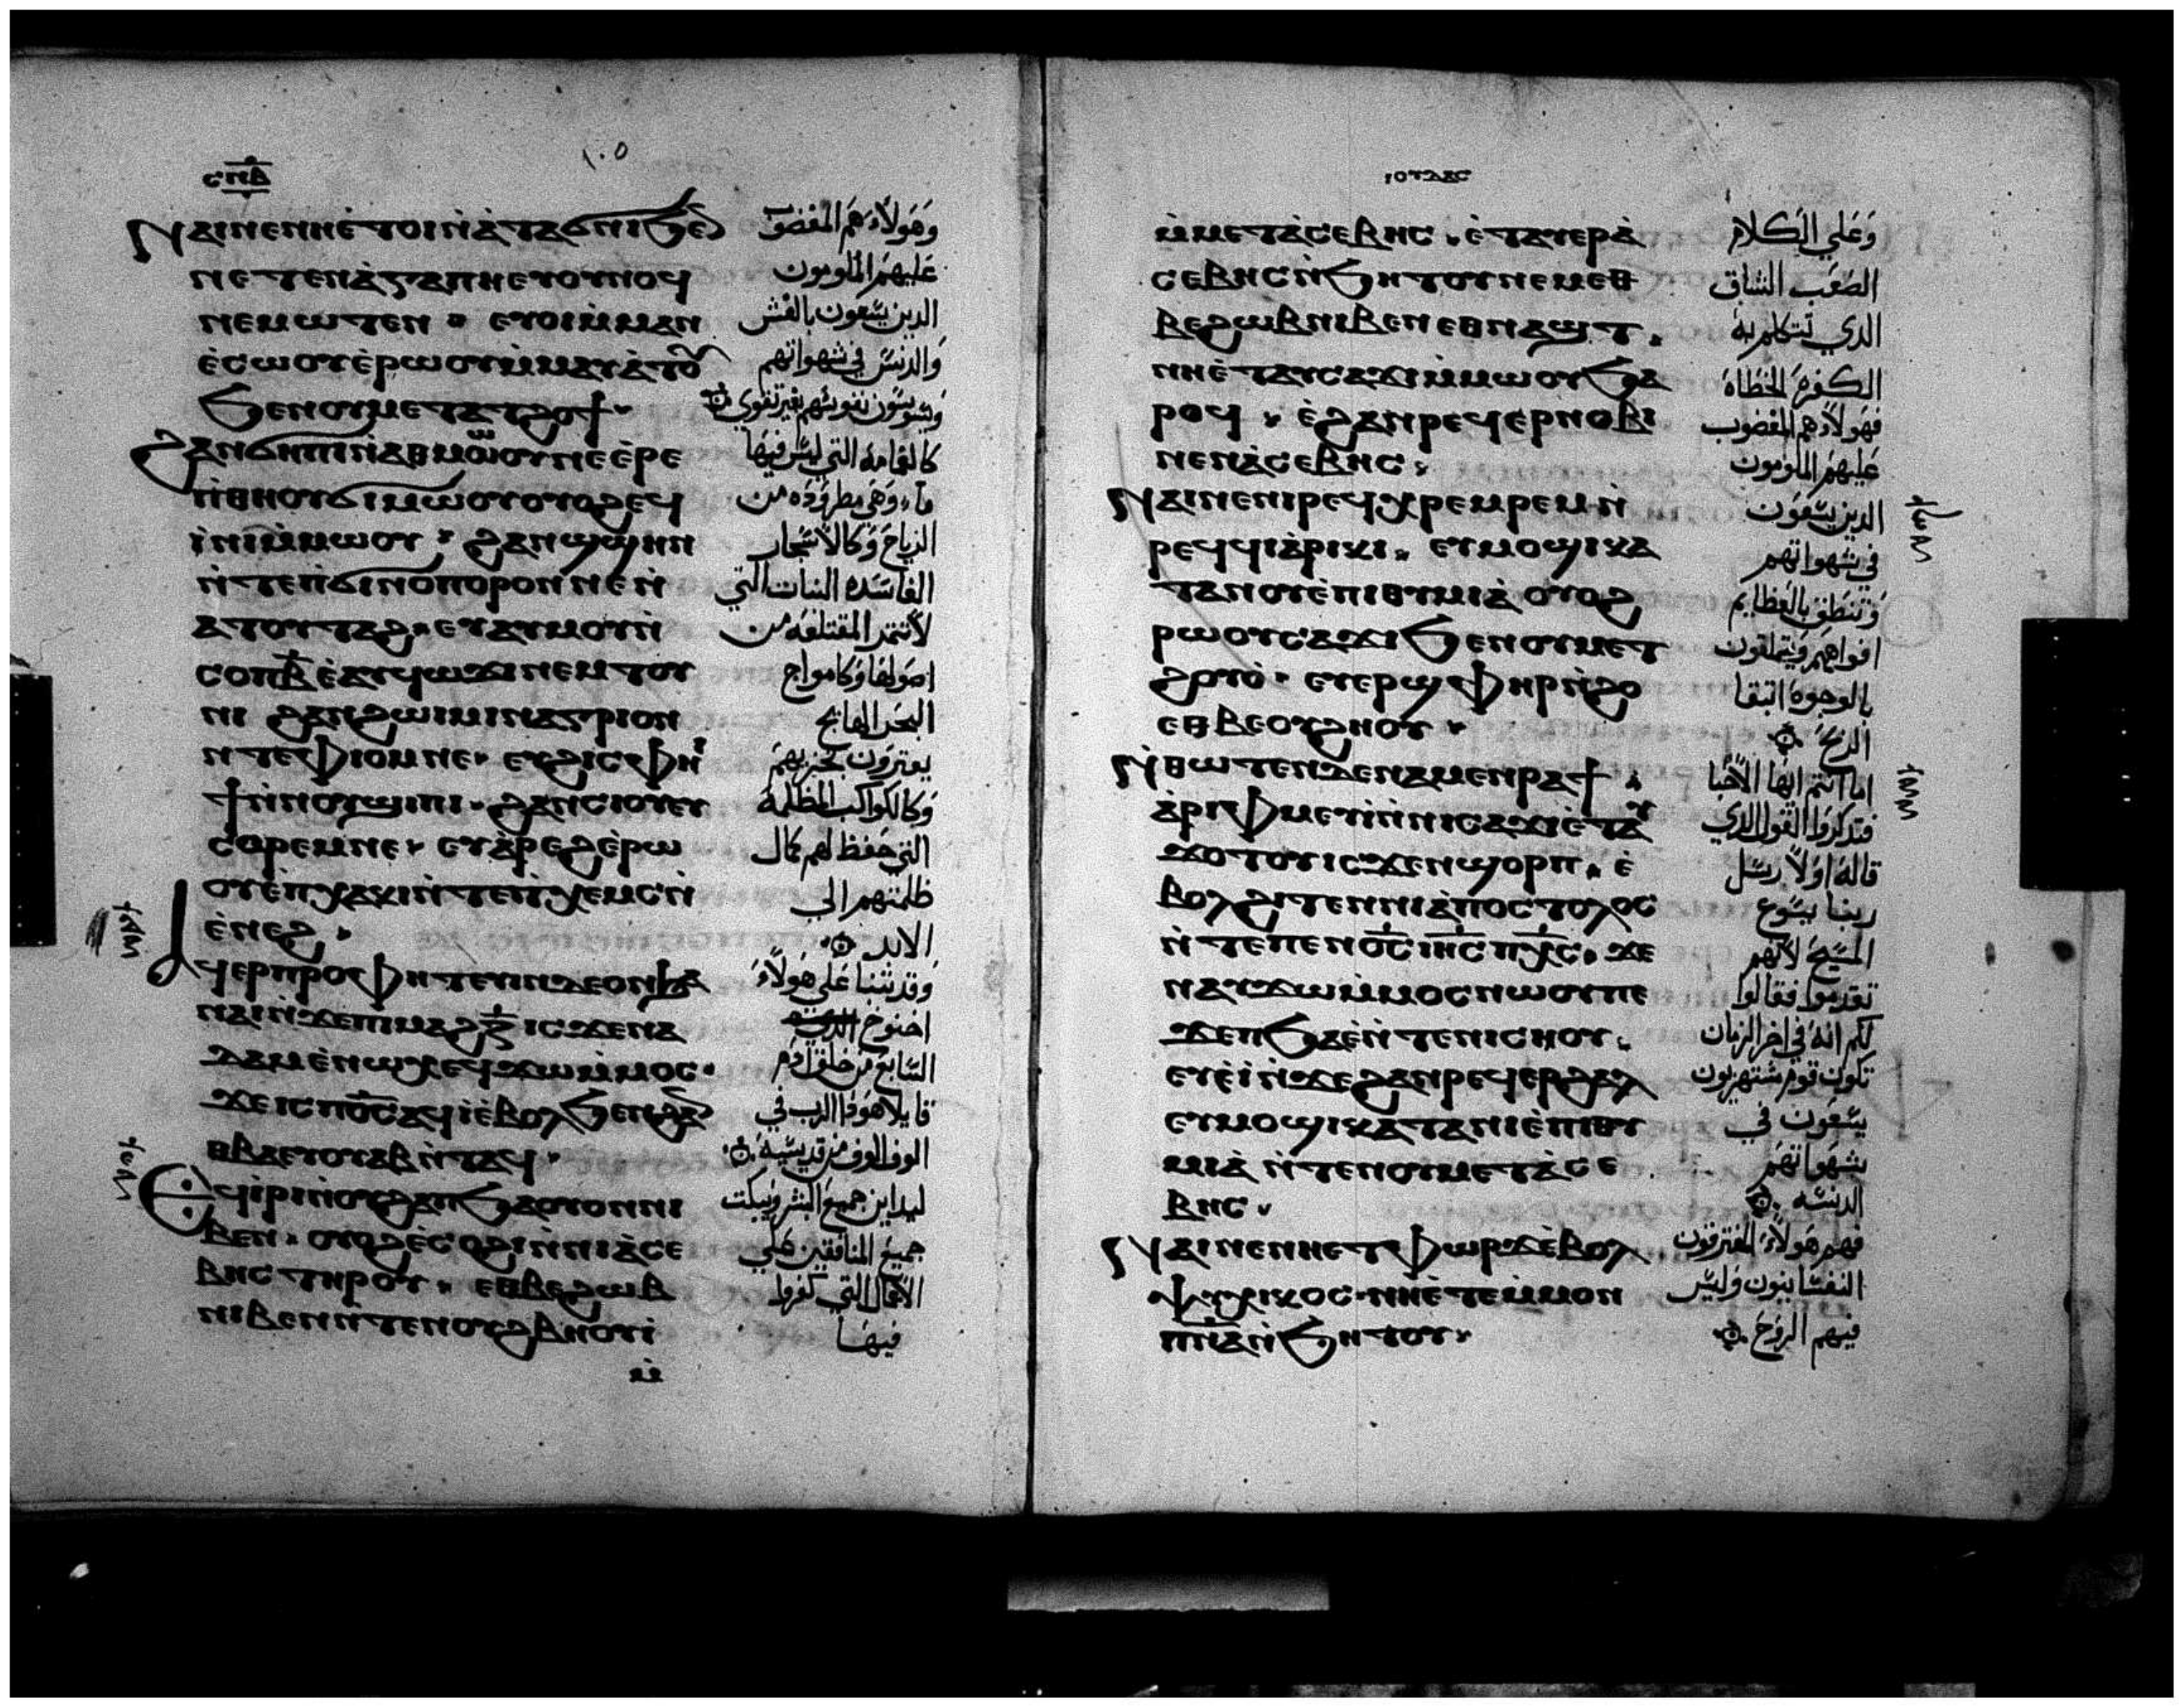 ⲥⲡⲇ
١٠٥
ⲛⲁⲓⲛⲉⲛⲏⲉⲧⲟⲓⲛⲁⲧⲁϭⲛⲓϧⲉⲛ
ⲛⲉⲧⲉⲛⲁⲅⲁⲡⲏⲉⲩⲟⲩⲛⲟϥ
ⲛⲉⲙⲱⲧⲉⲛ ⲉⲩⲟⲓⲙⲙⲁⲛ
ⲉⲥⲱⲟⲩⲉⲣⲱⲟⲩⲙⲙⲁⲩⲁⲧⲟⲩ
ϧⲉⲛⲟⲩⲙⲉⲧⲁⲧϩⲟϯ
ϩⲁⲛϭⲏⲡⲓⲛⲁⲑⲙⲱⲟⲩⲛⲉⲉⲣⲉ
ⲛⲑⲏⲟⲩϭⲓⲙⲱⲟⲩⲟⲩⲟϩⲉϥ
ⲓⲛⲓⲙⲙⲱⲟⲩ ϩⲁⲛϣϣⲏⲛ
ⲛⲧⲉⲡϭⲓⲛⲟⲡⲟⲣⲟⲛⲛⲉⲛ
ⲁⲧⲟⲩⲧⲁϩ ⲉⲩⲁⲩⲙⲟⲩⲛ
ⲥⲟⲡⲃ ⲉⲁⲩϥⲱϫⲓⲛⲉⲙⲧⲟⲩ
ⲛⲓ ϩⲁⲛϩⲱⲓⲙⲓⲛⲁⲅⲣⲓⲟⲛ
ⲛⲧⲉⲫⲓⲟⲙⲛⲉ ⲉⲩϩⲓⲥⲉⲫⲏ
ϯⲛⲛⲟⲩϣⲓⲡⲓ ϩⲁⲛⲥⲓⲟⲩⲉⲩ
ⲥⲟⲣⲉⲙⲛⲉ ⲉⲩⲁⲣⲉϩⲉⲣⲱ
ⲟⲩⲉⲡⲭⲁⲕⲓⲛⲧⲉⲡⲭⲉⲙⲥⲛ
ⲉⲛⲉϩ
ⲁϥⲉⲣⲡⲣⲟⲫⲏⲧⲉⲩⲓⲛⲇⲉⲟⲛϧⲁ
ⲛⲁⲓⲛϫⲉⲡⲓⲙⲁϩⲍ ⲓⲥϫⲉⲛⲁ
ⲇⲁⲙⲉⲛⲱⲭⲉϥϫⲱⲙⲙⲟⲥ
ϫⲉⲓⲥⲡⲟⲥⲁϥⲓⲉⲃⲟⲗϧⲉⲛϩⲁⲛ
ⲑⲃⲁⲉⲩⲟⲩⲁⲃⲛⲧⲁϥ
ⲉϥⲓⲣⲓⲛⲟⲩϩⲁⲡϧⲁⲟⲩⲟⲛⲛⲓ
ⲃⲉⲛ ⲟⲩⲟϩⲉⲥⲟϩⲓⲛⲛⲓⲁⲥⲉ
ⲃⲏⲥⲧⲏⲣⲟⲩ ⲉⲑⲃⲉϩⲱⲃ
ⲛⲓⲃⲉⲛⲛⲧⲉⲛⲟⲩϩⲃⲏⲟⲩⲓ
ⲙ
وهولاء هم المغضوب
عليهم الملومون
الدين يسعون بالغش
والدنس في شهواتهم
ويسوسون نفوسهم بغير تقوي
كالغمامه التي ليس فيها
ماء وهي مطروده من
الرياح وكالاشجار
الفاسده النبات التي
لا تثمر المقتلعه من
اصولها وكامواج
البحر الهايج
يعترفون بخزيهم
وكالكواكب المظلمة
التي حفظ لهم كمال
ظلمتهم الي
الابد
وقد تنبا علي هولاء
اخنوخ
السابع من خلف ادم
قايلا هودا الرب في
الوف الوف من قديسيه
ليداين جميع البشر ويبكت
جميع المنافقين علي
الاعمال التي كفروا
فيها
ⲓⲟⲩⲇⲁⲥ
ⲙⲙⲉⲧⲁⲥⲉⲃⲏⲥ ⲉⲧⲁⲩⲉⲣⲁ
ⲥⲉⲃⲏⲥⲛϧⲏⲧⲟⲩⲛⲉⲙⲉⲑ
ⲃⲉϩⲱⲃⲛⲓⲃⲉⲛⲉⲑⲛⲁϣⲧ
ⲛⲏⲉⲧⲁⲩⲥⲁϫⲓⲙⲙⲱⲟⲩϧⲁ
ⲣⲟϥ ⲉϩⲁⲛⲣⲉϥⲉⲣⲛⲟⲃⲓ
ⲛⲉⲛⲁⲥⲉⲃⲏⲥ
ⲛⲁⲓⲛⲉⲛⲓⲣⲉϥⲭⲣⲉⲙⲣⲉⲙⲛ
ⲣⲉϥϥⲓⲁⲣⲓⲕⲓ ⲉⲩⲙⲟϣⲓⲕⲁ
ⲧⲁⲛⲟⲩⲉⲡⲓⲑⲩⲙⲓⲁ ⲟⲩⲟϩ
ⲣⲱⲟⲩⲥⲁϫⲓϧⲉⲛⲟⲩⲙⲉⲧ
ϩⲟⲩⲟ ⲉⲩⲉⲣϣⲫⲏⲣⲓⲛϩⲟ
ⲉⲑⲃⲉⲟⲩϩⲏⲟⲩ
ⲛⲑⲱⲧⲉⲛⲇⲉⲛⲁⲙⲉⲛⲣⲁϯ
ⲁⲣⲓⲫⲙⲉⲩⲓⲛⲛⲓⲥⲁϫⲓⲉⲧⲁⲩ
ϫⲟⲧⲟⲩⲓⲥϫⲉⲛϣⲟⲣⲡ ⲉ
ⲃⲟⲗϩⲓⲧⲉⲛⲛⲓⲁⲡⲟⲥⲧⲟⲗⲟⲥ
ⲛⲧⲉⲡⲉⲛⲟⲥⲓⲏⲥⲡⲭⲥ ϫⲉ
ⲛⲁⲩϫⲱⲙⲙⲟⲥⲛⲱⲟⲩⲡⲉ
ϫⲉⲡϧⲁⲉⲛⲧⲉⲛⲓⲥⲏⲟⲩ
ⲉⲩⲉⲓⲛϫⲉϩⲁⲛⲣⲉϥⲉⲣϩⲁⲗ
ⲉⲩⲙⲟϣⲓⲕⲁⲧⲁⲛⲓⲉⲡⲓⲑⲩ
ⲙⲓⲁ ⲛⲧⲉⲛⲟⲩⲙⲉⲧⲁⲥⲉ
ⲃⲏⲥ
ⲛⲁⲓⲛⲉⲛⲏⲉⲧⲫⲱⲣϫⲉⲃⲟⲗ
ⲯⲩⲭⲓⲕⲟⲥ ⲛⲏⲉⲧⲉⲙⲙⲟⲛ
ⲡⲛⲁⲛϧⲏⲧⲟⲩ
وعلي الكلام
الصعب الشاق
الدي تتكلم به
الكفره الخطاه
فهولاء هم المغضوب
عليهم الملومون
الدين يسعون
في شهواتهم
وتنطق بالعظايم
افواههم ويتملقون
بالوجوه ابتغا
الربح
اما انتم ايها الاحبا
فتدكروا القول الدي
قاله اولا رسل
ربنا يسوع
المسيح لانهم
تقدموا فقالوا
لكم انه في اخر الزمان
تكون قوم مستهزيون
يسعون في
شهواتهم
الدنسه
فهم هولاء المفترقون
النفسانيون وليس
فيهم الروح